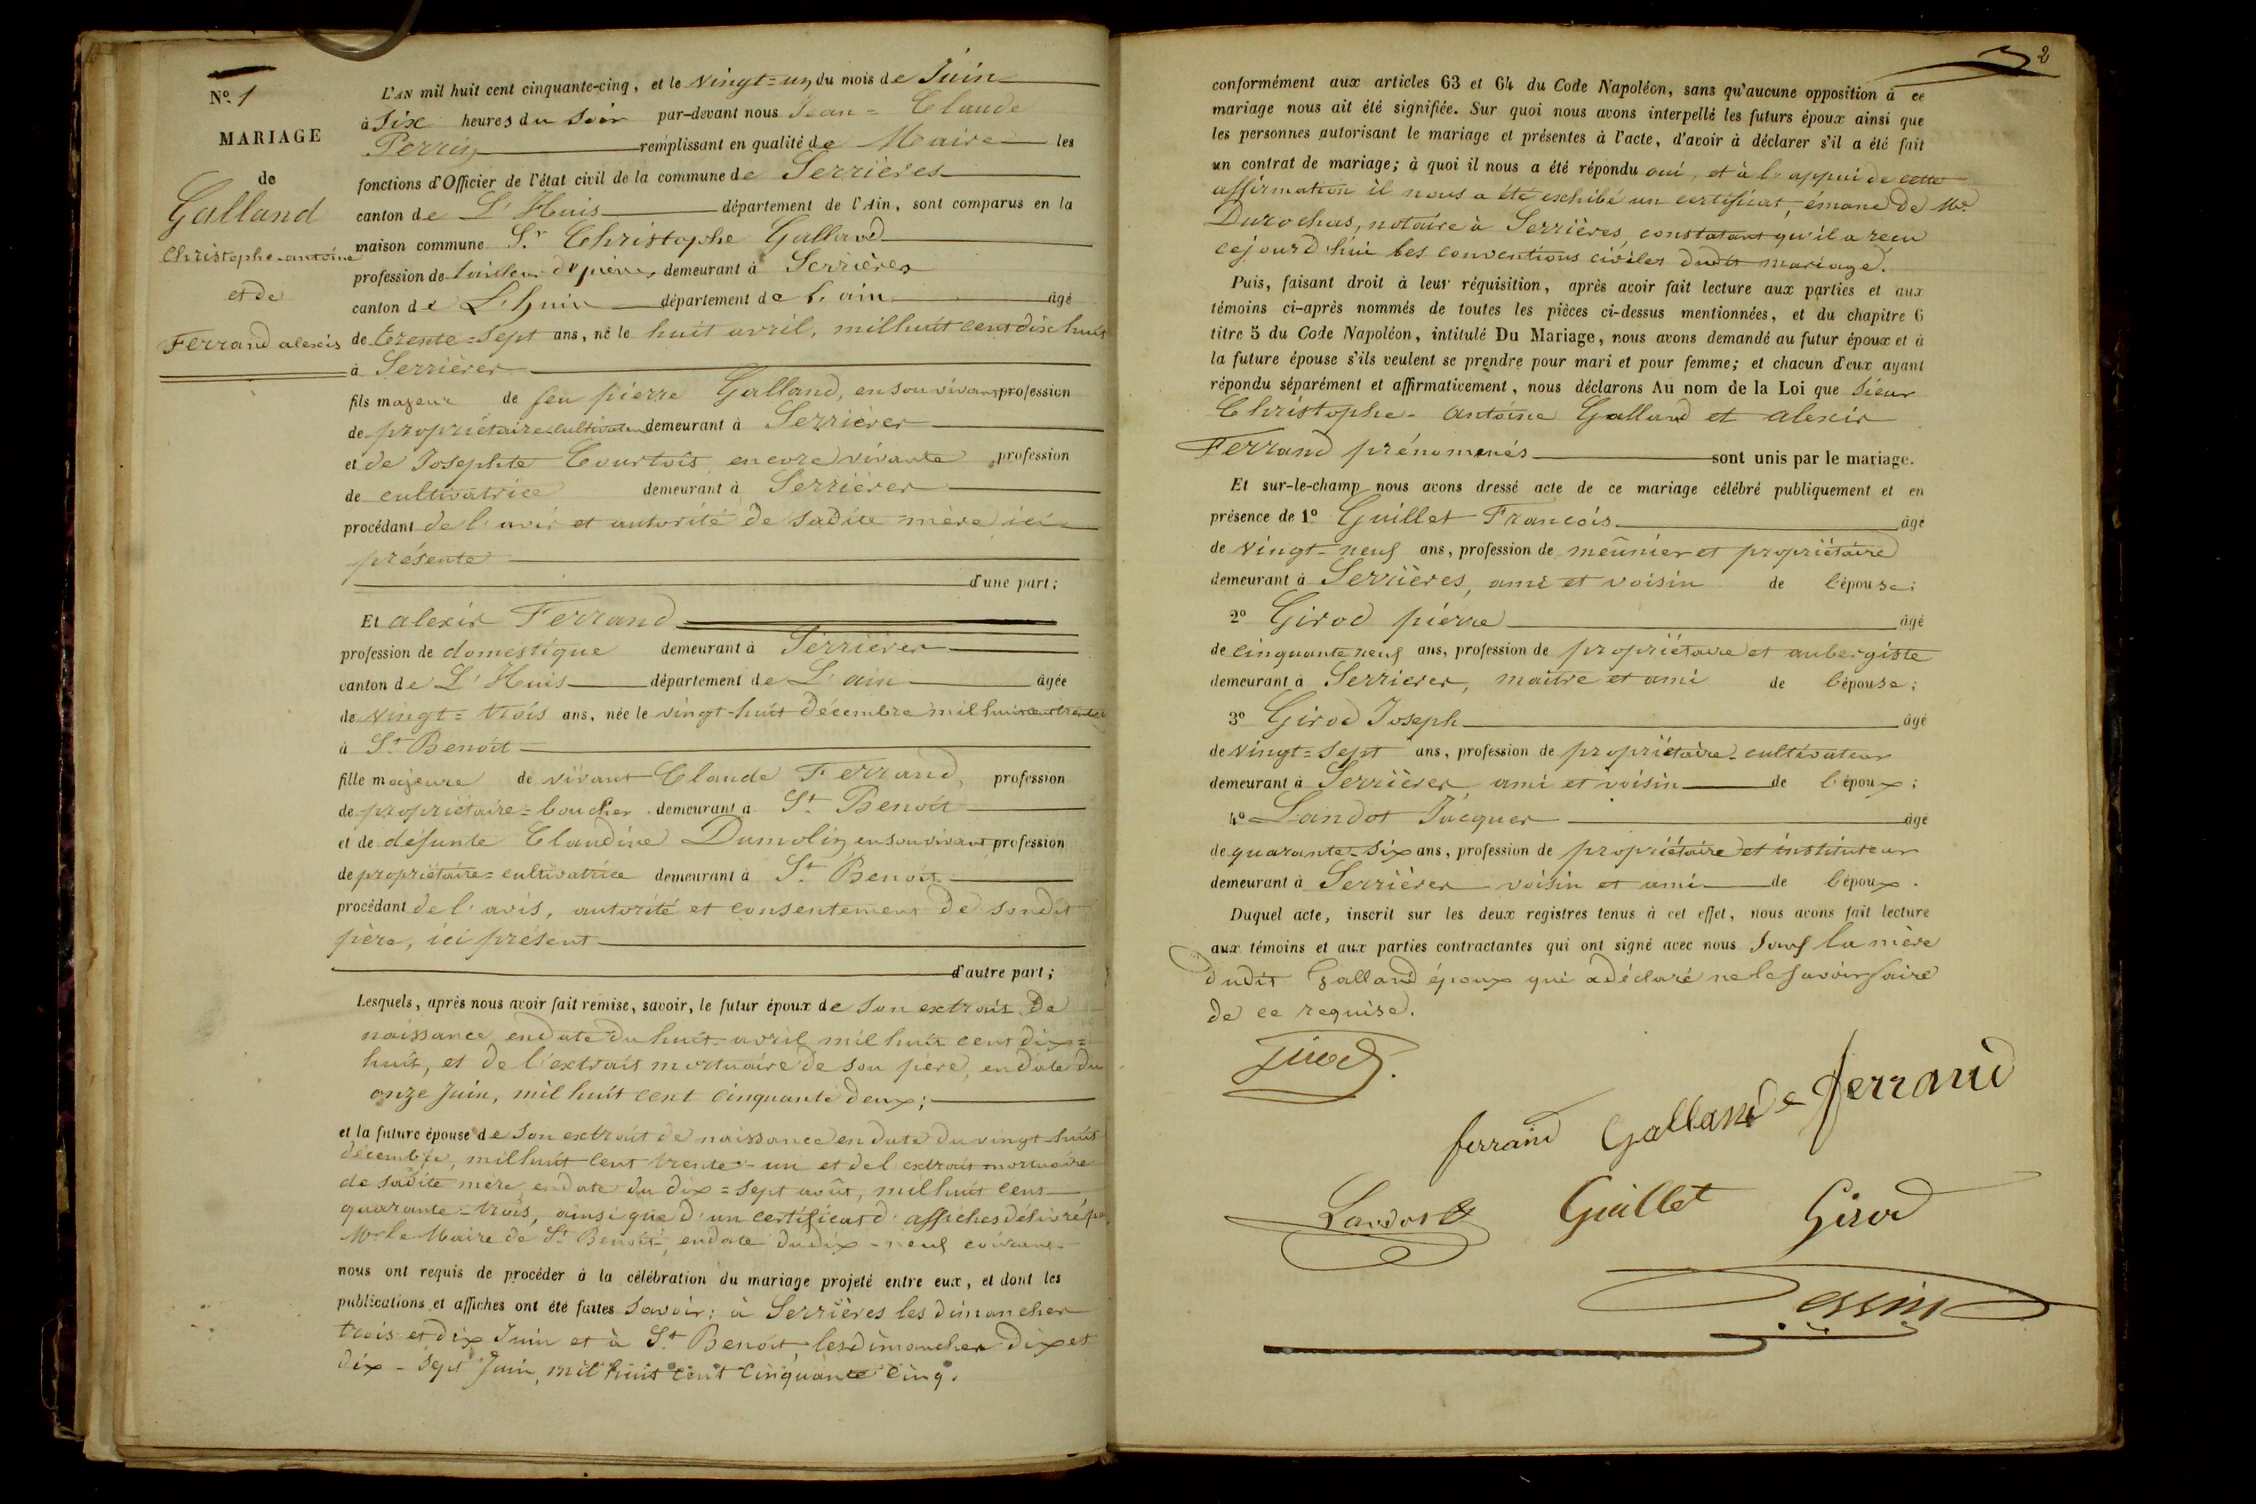 N.º 1
MARIAGE
de
Galland
Christophe-antoine
et de
Ferrand alexis
L'AN mil huit cent cinquante-cinq, et le vingt=un du mois de Juin
à Six heures du Soir par-devant nous Jean=Claude
Perrin remplissant en qualité de Maire les
fonctions d'Officier de l'état civil de la commune de Serrières
canton de L'Huis département de l'Ain, sont comparus en la
maison commune S.r Christophe Galland
profession de tailleur de pierres demeurant à Serrières
canton de L'huis département de l'ain âgé
de trente=Sept ans, né le huit avril, mil huit cent dix huit
à Serrières
fils majeur de feu pierre Galland, en son vivant profession
de propriétaire cultivateur demeurant à Serrières
et de Josephte Courtois encore vivante, profession
de cultivatrice demeurant à Serrières
procédant de l'avis et autorité de Sadite mère ici
présente
d'une part;
Et alexis Ferrand
profession de domestique demeurant à Serrières
canton de L'Huis département de L'ain âgée
de vingt=trois ans, née le vingt-huit décembre mil huit cent trente
à S.t Benoît
fille majeure de vivant Claude Ferrand, profession
de propriétaire=boucher demeurant à S.t Benoît
et de défunte Claudine Dumolin, en son vivant profession
de propriétaire=cultivatrice demeurant à S.t Benoît
procédant de l'avis, autorité et consentement de Sondit
père, ici présent
d'autre part;
Lesquels, après nous avoir fait remise, savoir, le futur époux de Son extrait de
naissance, en date du huit avril mil huit cent dix=
huit, et de l'extrait mortuaire de son père, en date du
onze Juin, mil huit cent cinquante deux;
et la future épouse de Son extrait de naissance en date du vingt-huit
décembre, mil huit cent trente-un et de l'extrait mortuaire
de Sadite mère, en date du dix=sept août, mil huit cent
quarante=trois, ainsi que d'un certificat d'affiches délivré par
Mr le Maire de S.t Benoît, en date du dix-neuf courant
nous ont requis de procéder à la célébration du mariage projeté entre eux, et dont les
publications et affiches ont été faites Savoir: à Serrières les dimanches
trois et dix Juin et à S.t Benoît, les dimanches dix et
dix-sept Juin, mil huit cent cinquante cinq.
2
conformément aux articles 63 et 64 du Code Napoléon, sans qu'aucune opposition à ce
mariage nous ait été signifiée. Sur quoi nous avons interpellé les futurs époux ainsi que
les personnes autorisant le mariage et présentes à l'acte, d'avoir à déclarer s'il a été fait
un contrat de mariage; à quoi il nous a été répondu oui, et à l'appui de cette
affirmation il nous a été exhibé un certificat, émané de Mr.
Durochas, notaire à Serrières, constatant qu'il a reçu
cejourd'hui les conventions civiles dudit mariage.
Puis, faisant droit à leur réquisition, après avoir fait lecture aux parties et aux
témoins ci-après nommés de toutes les pièces ci-dessus mentionnées, et du chapitre 6
titre 5 du Code Napoléon, intitulé Du Mariage, nous avons demandé au futur époux et à
la future épouse s'ils veulent se prendre pour mari et pour femme; et chacun d'eux ayant
répondu séparément et affirmativement, nous déclarons Au nom de la Loi que Sieur
Christophe-antoine Galland et alexis
Ferrand prénommés sont unis par le mariage.
Et sur-le-champ nous avons dressé acte de ce mariage célébré publiquement et en
présence de 1º Guillet François âgé
de vingt-neuf ans, profession de meûnier et propriétaire
demeurant à Serrières, ami et voisin de l'épouse;
2º Girod pierre âgé
de cinquante neuf ans, profession de propriétaire et aubergiste
demeurant à Serrières, maître et ami de l'épouse;
3º Girod Joseph âgé
de vingt=sept ans, profession de propriétaire-cultivateur
demeurant à Serrières ami et voisin de l'époux;
4º Landot Jacques âgé
de quarante-six ans, profession de propriétaire et instituteur
demeurant à Serrières voisin et ami de l'époux.
Duquel acte, inscrit sur les deux registres tenus à cet effet, nous avons fait lecture
aux témoins et aux parties contractantes qui ont signé avec nous Sauf la mère
dudit Galland époux qui a déclaré ne le Savoir faire
de ce requise.
Girod
ferrand Galland e ferrand
Landot Guillet Girod
Perrin